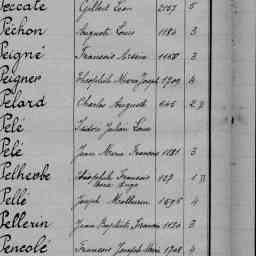 Peccate Gilbert Léon 2157 5
Péchon Auguste Louis 1184 3
Peigné Francois 1158 3
Peigner Théophile Marie Joseph 1709 4
Pelard Charles Auguste 646 2
Pelé Isidore Julien Louis
Pelé Jean Marie Francois 1081 3
Pelherbe Théophile Francois 127 1
Pellé Joseph Mathurin 1595 4
Pellerin Jean Baptiste Francois 1130 3
Pencolé Francois Joseph Marie 1748 4